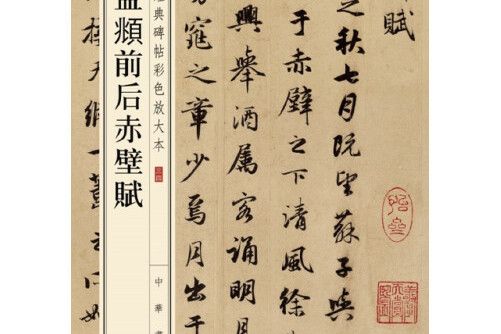 賦
之秋七月既望蘇子與
于赤壁之下清風徐
興舉酒属客誦明
窕之章少焉月出于
典碑帖彩色放大本
頫前后赤壁賦
中華
接天縱一葦之所如